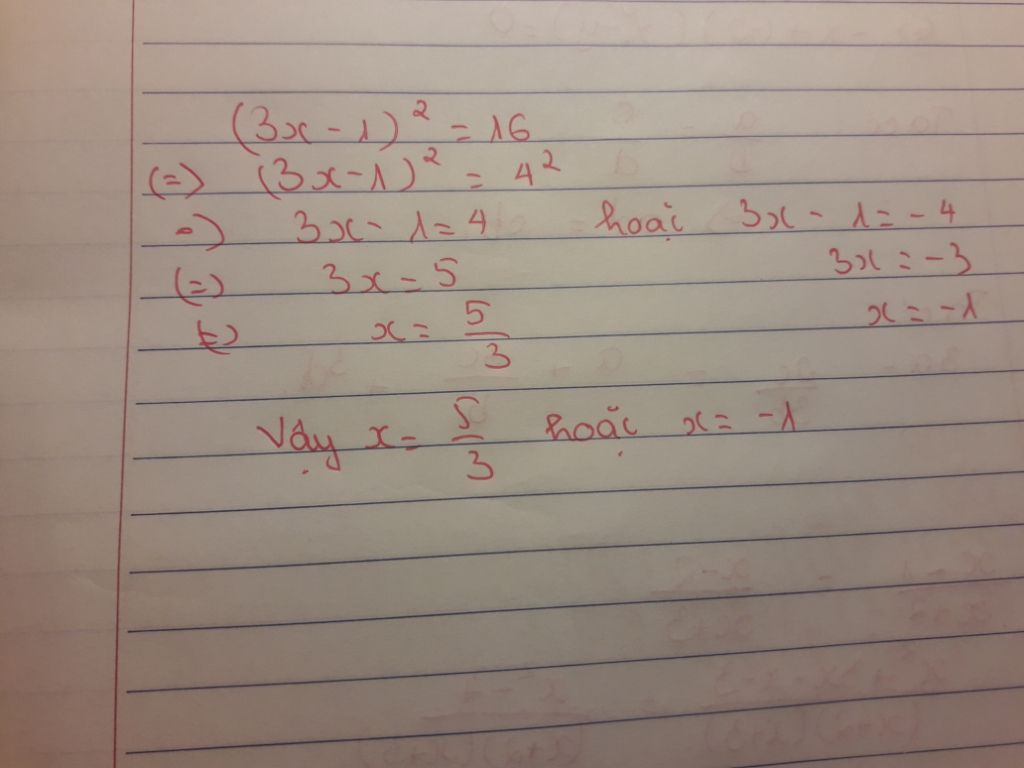 (3x - 1)² = 16
(=) (3x - 1)² = 4²
=) 3x - 1 = 4 hoặc 3x - 1 = -4
(=) 3x = 5 3x = -3
(=) x = 5/3 x = -1
Vậy x = 5/3 hoặc x = -1